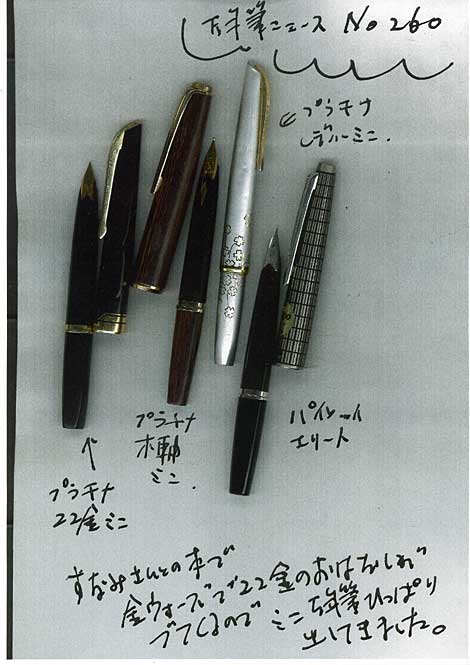 万年筆ニュース No 260
プラチナ
レディーミニ.
パイロット
エリート
プラチナ
木軸
ミニ.
プラチナ
22金ミニ
すなみさんとの本で
金ウォーズで22金のおはなしが
でてくるので ミニ万年筆ひっぱり
出してきました。